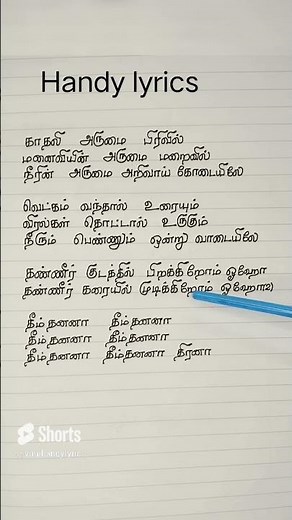 Handy lyrics
காதலி அருமை பிரிவில்
மனைவியின் அருமை மறைவில்
நீரின் அருமை அறிவாய் கோடையிலே
வெட்கம் வந்தால் உரையும்
விரல்கள் தொட்டால் உருகும்
நீரும் பெண்ணும் ஒன்று வாடையிலே
தண்ணீர் குடத்தில் பிறக்கிறோம் ஓஹோ
தண்ணீர் கரையில் முடிக்கிறோம் ஓஹோ2)
தீம்தனனா தீம்தனனா
தீம்தனனா தீம்தனனா
தீம்தனனா தீம்தனனா திரனா
Shorts